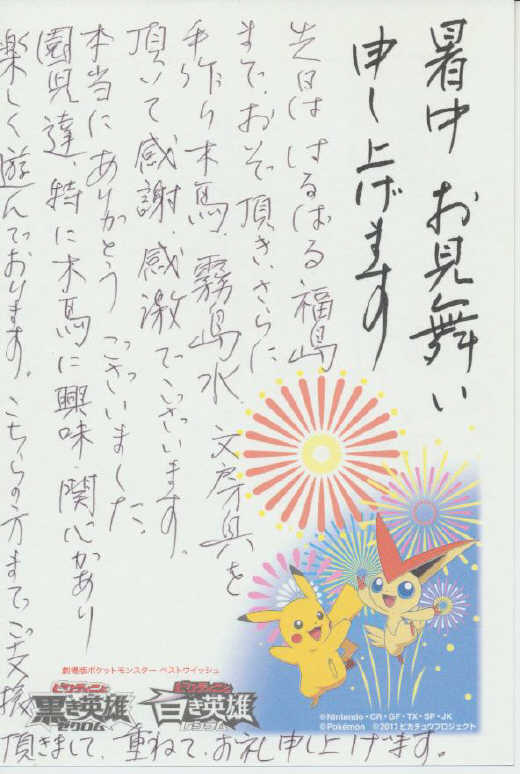 暑中お見舞い
申し上げます
先日は はるばる福島
まで、お越し頂き、さらに
手作り木馬、霧島水、文房具を
頂いて感謝、感激でございます。
本当にありがとうございました。
園児達、特に木馬に興味・関心があり
楽しく遊んでおります。こちらの方まで、ご支援
頂きまして、重ねて、お礼申し上げます。
劇場版ポケットモンスター ベストウイッシュ
ビクティニと
黒き英雄
ゼクロム
ビクティニと
白き英雄
レシラム
©Nintendo・CR・GF・TX・SP・JK
©Pokémon ©2011 ピカチュウプロジェクト